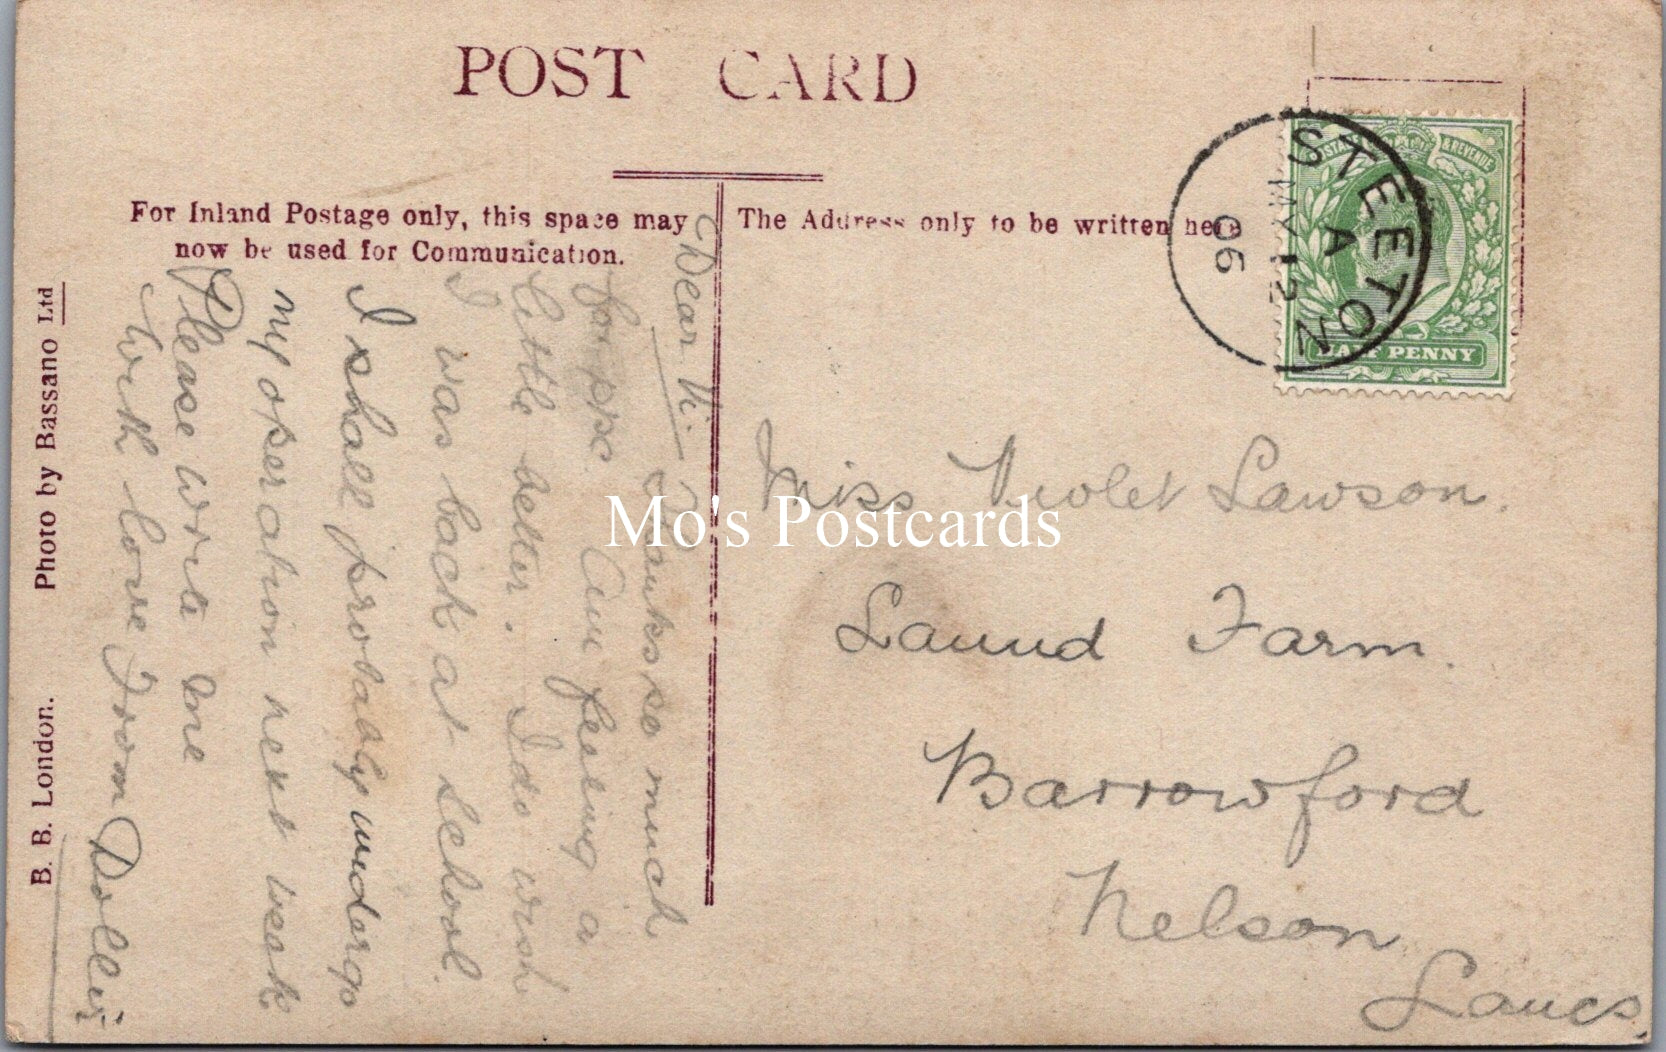 POST CARD
For Inland Postage only, this space may
now be used for Communication.
The Address only to be written here
STEETON
A
MY 12
06
POSTAGE & REVENUE
HALF PENNY
Dear Vi. Thanks so much
for ppc. Am feeling a
little better. I do wish
I was back at school.
I shall probably undergo
my operation next week
Please write me
With love from Dollie
Miss Violet Lawson.
Laund Farm.
Barrowford
Nelson
Lancs.
Photo by Bassano Ltd
B. B. London.
Mo's Postcards